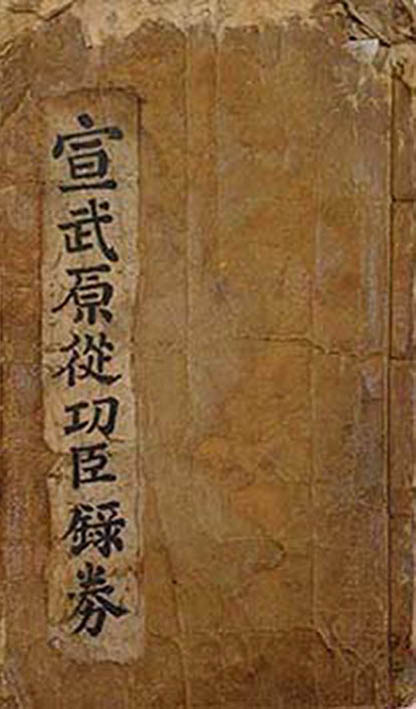 宣武原從功臣錄券